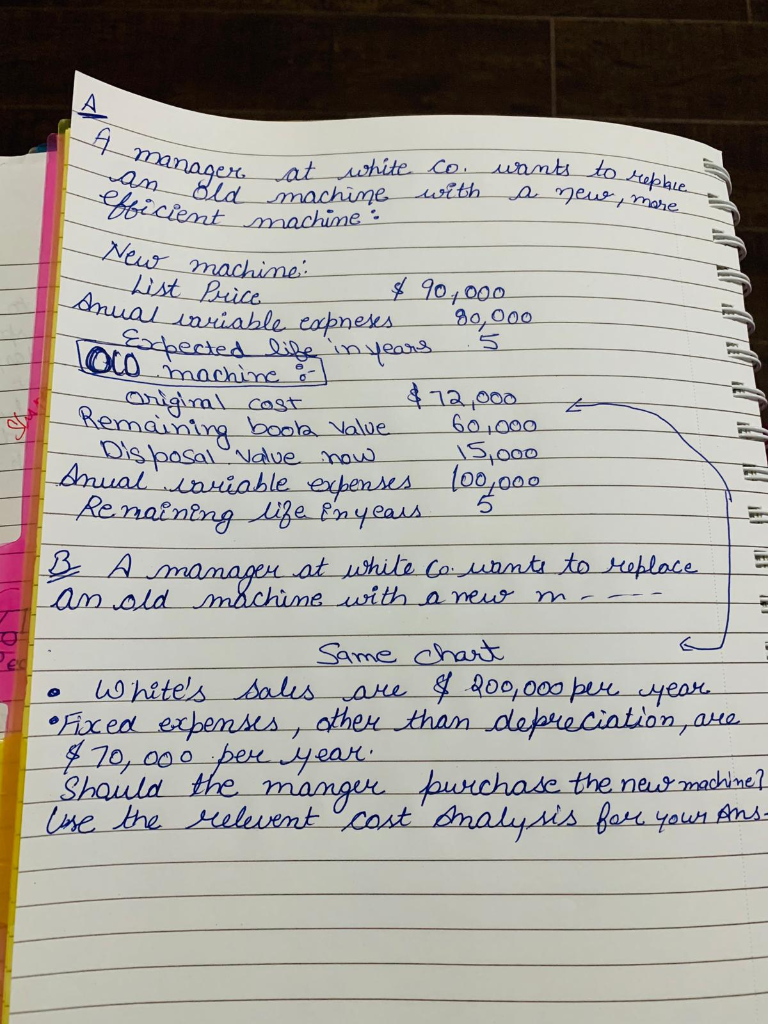 A
A manager at white co. wants to replace
an old machine with a new, more
efficient machine:
New machine:
List Price $ 90,000
Anual variable expneses 80,000
Expected life in years 5
Old machine :-
Original cost $ 72,000
Remaining book value 60,000
Disposal value now 15,000
Anual variable expenses 100,000
Remaining life in years 5
B A manager at white Co. wants to replace
an old machine with a new m - - - -
Same chart
• White's sales are $ 200,000 per year
• Fixed expenses, other than depreciation, are
$ 70,000 per year.
Should the manger purchase the new machine?
Use the relevent cost Analysis for your Ans-